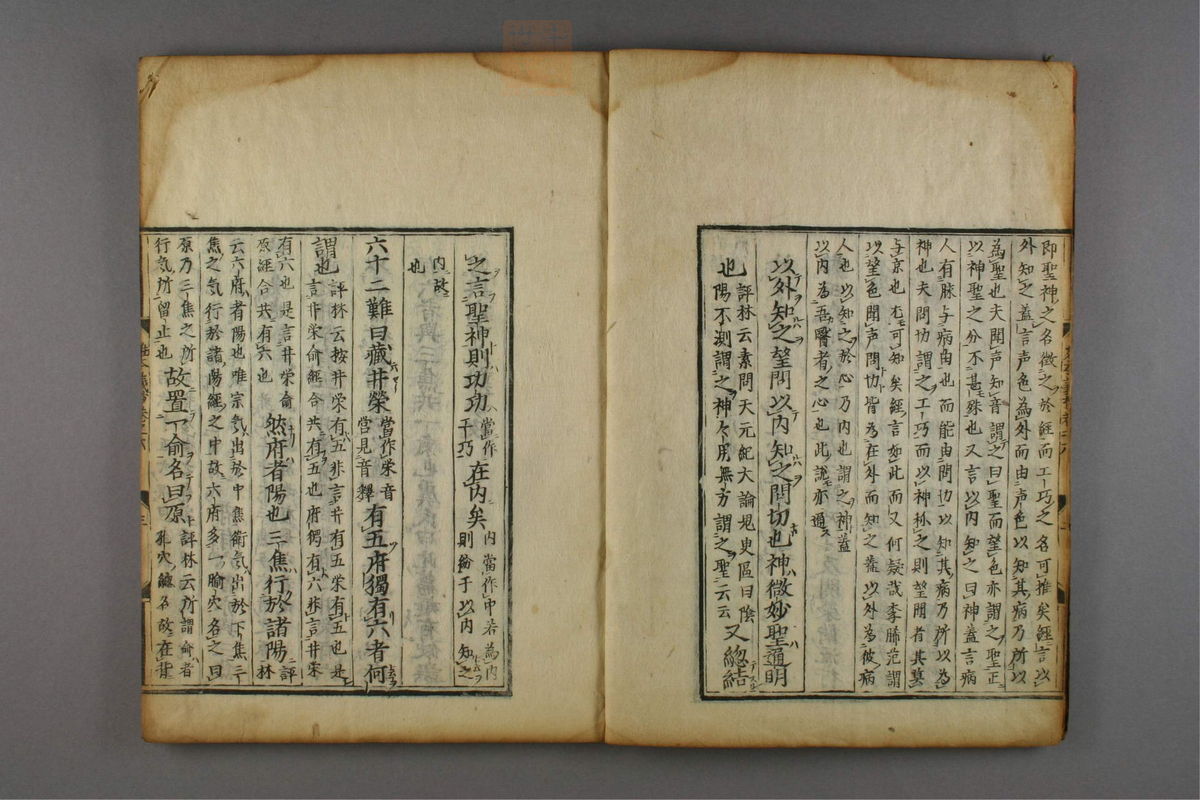 即聖神之名徵之於經而工巧之名可推矣經言以
外知之蓋言声色為外而由声色以知其病乃所以
為聖也夫聞声知音謂之曰聖而望色亦謂之聖正
以神聖之分不甚殊也又言以内知之曰神蓋言病
人有脉与病由也而能由問切以知其病乃所以為
神也夫問切謂之工巧而以神称之則望聞者其莫
与京也尤可知矣經言如此而又何疑哉李腃范謂
以望色聞声問切皆為在外而知之蓋以外為彼病
人也以知之於心乃内也謂之神蓋
以内為吾醫者之心也此説亦通
以外知之望問以内知之問切也神微妙聖通明
也 評林云素問天元紀大論鬼臾區曰陰
陽不測謂之神々用無方謂之聖云云 又總結
之言聖神則功功 當作
于巧 在内矣 内當作中若為内
則紛于以内知之
内故
也
六十二難曰藏井榮 當作栄音
営見音釋 有五府獨有六者何
謂也 評林云按井栄有五非言井有五栄有五也是
言井栄俞經合共有五也府獨有六非言井栄
有六也是言井栄俞
原經合共有六也 然府者陽也三焦行於諸陽 評
林
云六府者陽也唯宗氣出於中焦衛氣出於下焦三
焦之氣行於諸陽經之中故六府多一腧穴名之曰
原乃三焦之所
行氣所留止也 故置一俞名曰原 評林云所謂俞者
孔穴總名故在背